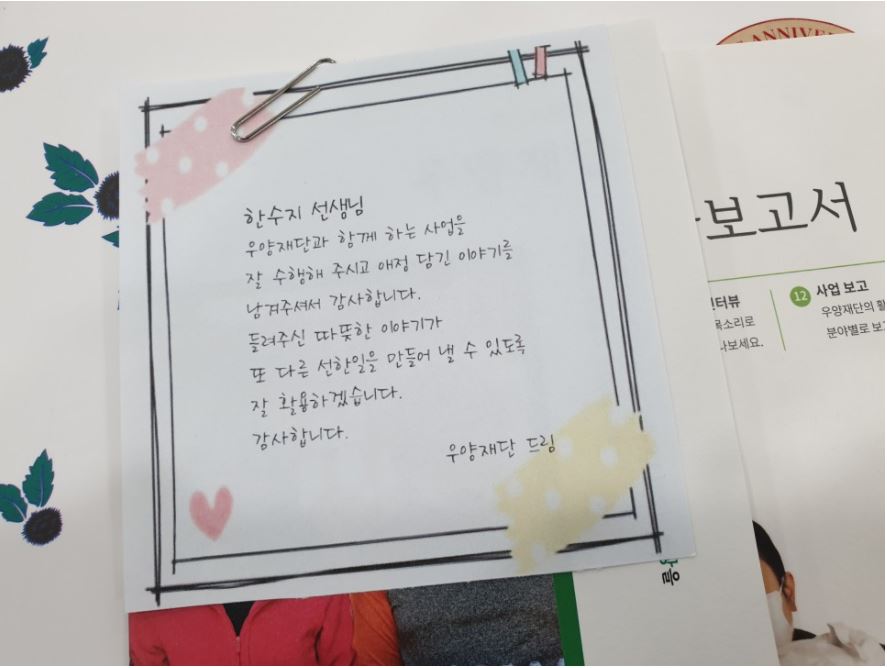 한수지 선생님
우양재단과 함께 하는 사업을
잘 수행해 주시고 애정 담긴 이야기를
남겨주셔서 감사합니다.
들려주신 따뜻한 이야기가
또 다른 선한일을 만들어 낼 수 있도록
잘 활용하겠습니다.
감사합니다.
우양재단 드림
보고서
터뷰
목소리로
나보세요.
12 사업 보고
우양재단의
분야별로